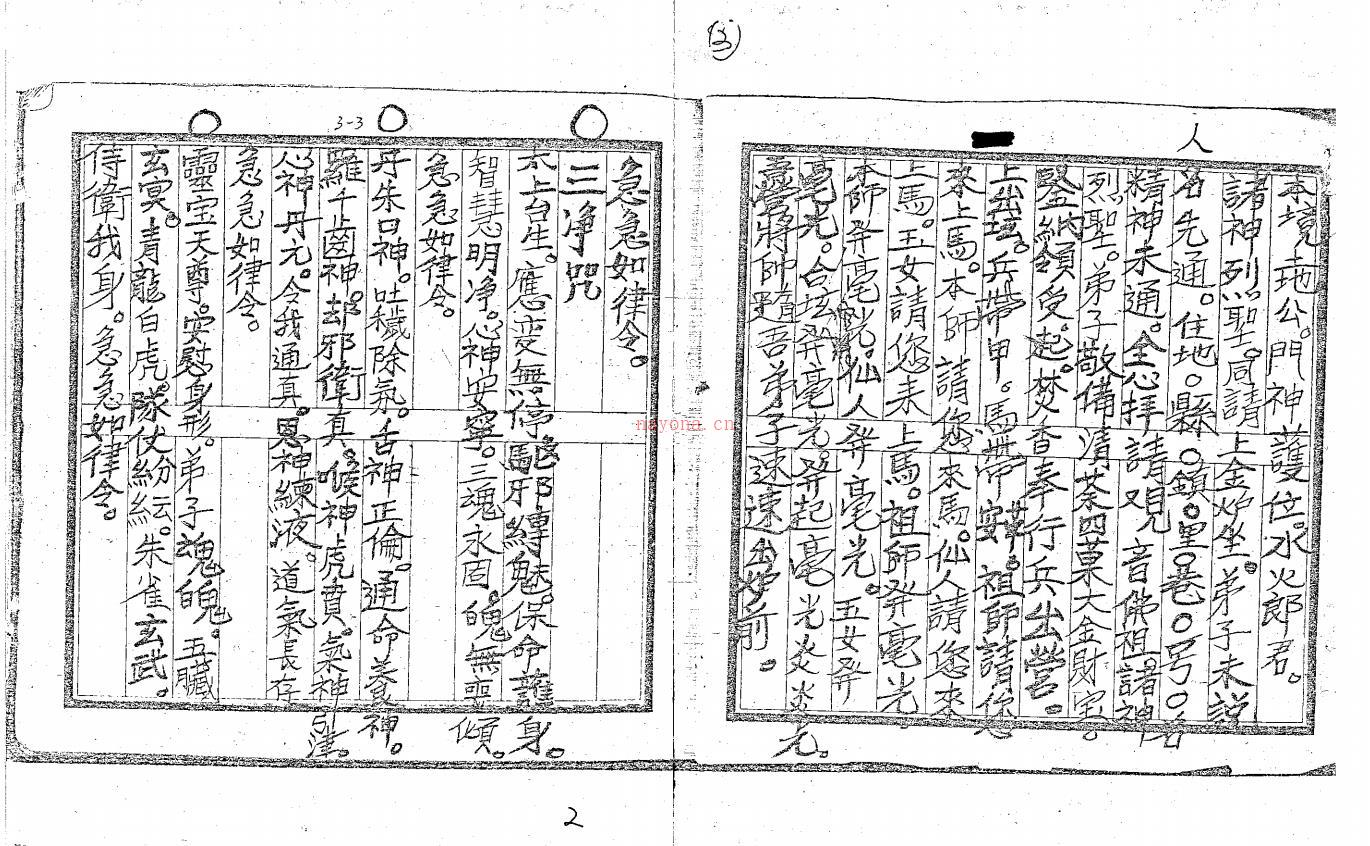 (3)
人
本境土地公。門神護位。水火郎君。
諸神列聖。同請上金炉坐。弟子未説
名先通。住地。縣〇鎮。里巷〇号〇名
精神未通。全心拜請 观音佛祖諸神
烈聖。弟子敬備 清茶四菓大金財宝。
鑒納領受。起焚香奉行兵出營。
上出坛。兵帶甲。馬帶鞍。祖師請您
來上馬。本師請您來馬。仙人請您來
上馬。玉女請您来上馬。祖師発毫光
本師発毫光。仙人発毫光。玉女発
毫光。合坛発毫光。発起毫光炎炎光。
營將帥隨吾弟子速速出炉前。
3-3
急急如律令。
三净咒
太上台星。應变無停。驅邪縛魅。保命護身。
智慧明净。心神安寧。三魂永固。魄無喪傾。
急急如律令。
丹朱口神。吐穢除氣。舌神正倫。通命養神。
羅千齒神。却邪衛真。喉神虎賁。氣神引津。
心神丹元。令我通真。思神練液。道氣長存
急急如律令。
靈宝天尊。安慰身形。弟子魂魄。五臟
玄冥。青龍白虎。隊仗紛紜。朱雀玄武。
侍衛我身。急急如律令。
nayona.cn
2